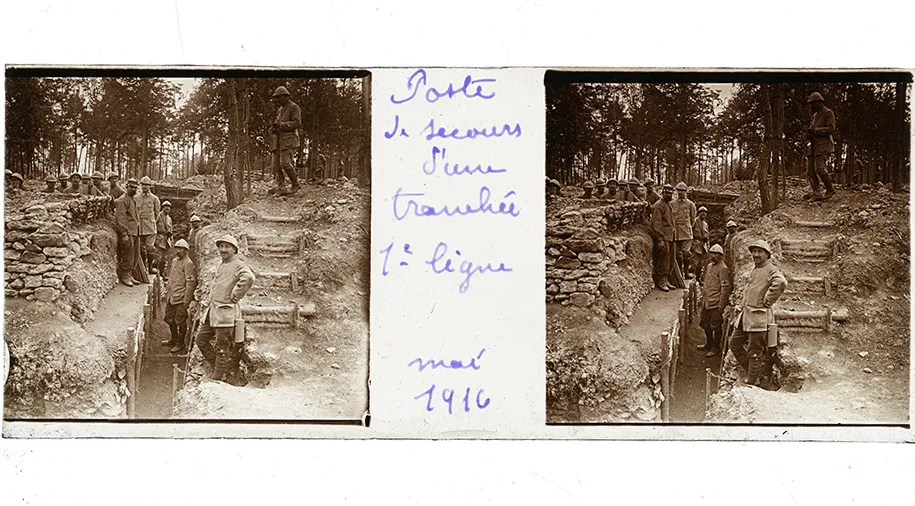 Poste
de secours
d'une
tranchée
1è ligne
mai
1916